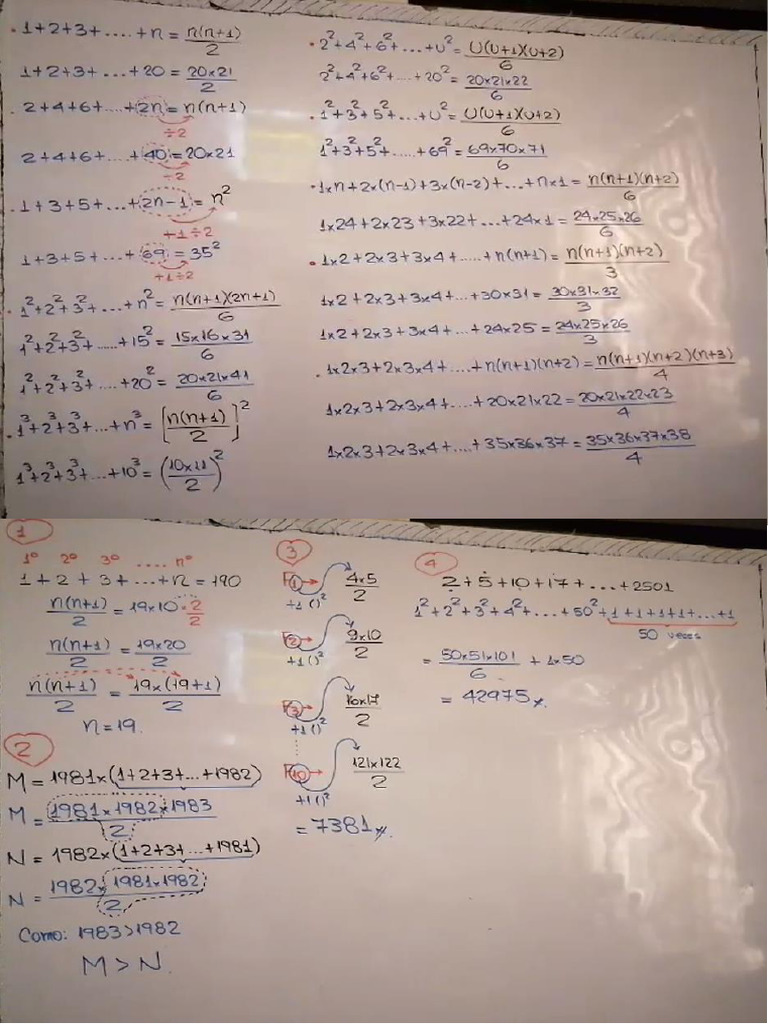 1+2+3+....+n = n(n+1)/2
1+2+3+....+20 = 20x21/2
2+4+6+....+2n = n(n+1)
÷2
2+4+6+....+40 = 20x21
÷2
1+3+5+...+2n-1 = n²
+1÷2
1+3+5+...+69 = 35²
+1÷2
1²+2²+3²+...+n² = n(n+1)(2n+1)/6
1²+2²+3²+.....+15² = 15x16x31/6
1²+2²+3²+....+20² = 20x21x41/6
1³+2³+3³+...+n³ = [n(n+1)/2]²
1³+2³+3³+...+10³ = (10x11/2)²
2²+4²+6²+...+U² = U(U+1)(U+2)/6
2²+4²+6²+....+20² = 20x21x22/6
1²+3²+5²+...+U² = U(U+1)(U+2)/6
1²+3²+5²+.....+69² = 69x70x71/6
1xn+2x(n-1)+3x(n-2)+...+nx1 = n(n+1)(n+2)/6
1x24+2x23+3x22+...+24x1 = 24x25x26/6
1x2+2x3+3x4+.....+n(n+1) = n(n+1)(n+2)/3
1x2+2x3+3x4+...+30x31 = 30x31x32/3
1x2+2x3+3x4+...+24x25 = 24x25x26/3
1x2x3+2x3x4+....+n(n+1)(n+2) = n(n+1)(n+2)(n+3)/4
1x2x3+2x3x4+....+20x21x22 = 20x21x22x23/4
1x2x3+2x3x4+....+35x36x37 = 35x36x37x38/4
1
1º 2º 3º .... nº
1+2+3+...+n = 190
n(n+1)/2 = 19x10·2/2
n(n+1)/2 = 19x20/2
n(n+1)/2 = 19x(19+1)/2
n=19.
2
M = 1981x(1+2+3+...+1982)
M = 1981x1982x1983/2
N = 1982x(1+2+3+...+1981)
N = 1982x1981x1982/2
Como: 1983>1982
M > N.
3
F1 → 4x5/2
+1 ( )²
F2 → 9x10/2
+1 ( )²
F3 → 16x17/2
+1 ( )²
F10 → 121x122/2
+1 ( )²
= 7381
4
2+5+10+17+....+2501
1²+2²+3²+4²+....+50²+1+1+1+1+...+1
50 veces
= 50x51x101/6 + 1x50
= 42975